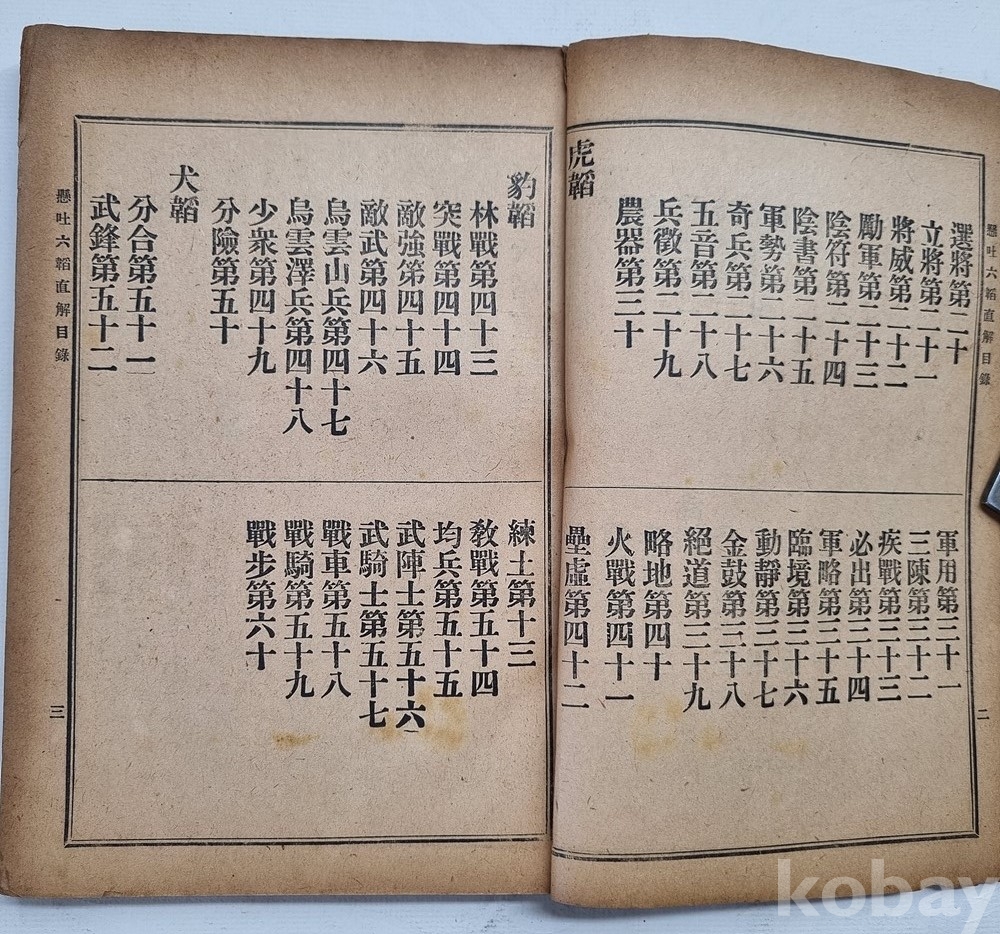 懸吐六韜直解目錄
二
選將第二十
立將第二十一
將威第二十二
勵軍第二十三
陰符第二十四
陰書第二十五
軍勢第二十六
奇兵第二十七
五音第二十八
兵徵第二十九
農器第三十
虎韜
軍用第三十一
三陳第三十二
疾戰第三十三
必出第三十四
軍略第三十五
臨境第三十六
動靜第三十七
金鼓第三十八
絕道第三十九
略地第四十
火戰第四十一
壘虛第四十二
豹韜
林戰第四十三
突戰第四十四
敵強第四十五
敵武第四十六
烏雲山兵第四十七
烏雲澤兵第四十八
少衆第四十九
分險第五十
犬韜
分合第五十一
武鋒第五十二
練士第十三
敎戰第五十四
均兵第五十五
武陣士第五十六
武騎士第五十七
戰車第五十八
戰騎第五十九
戰步第六十
懸吐六韜直解目錄
三
kobay